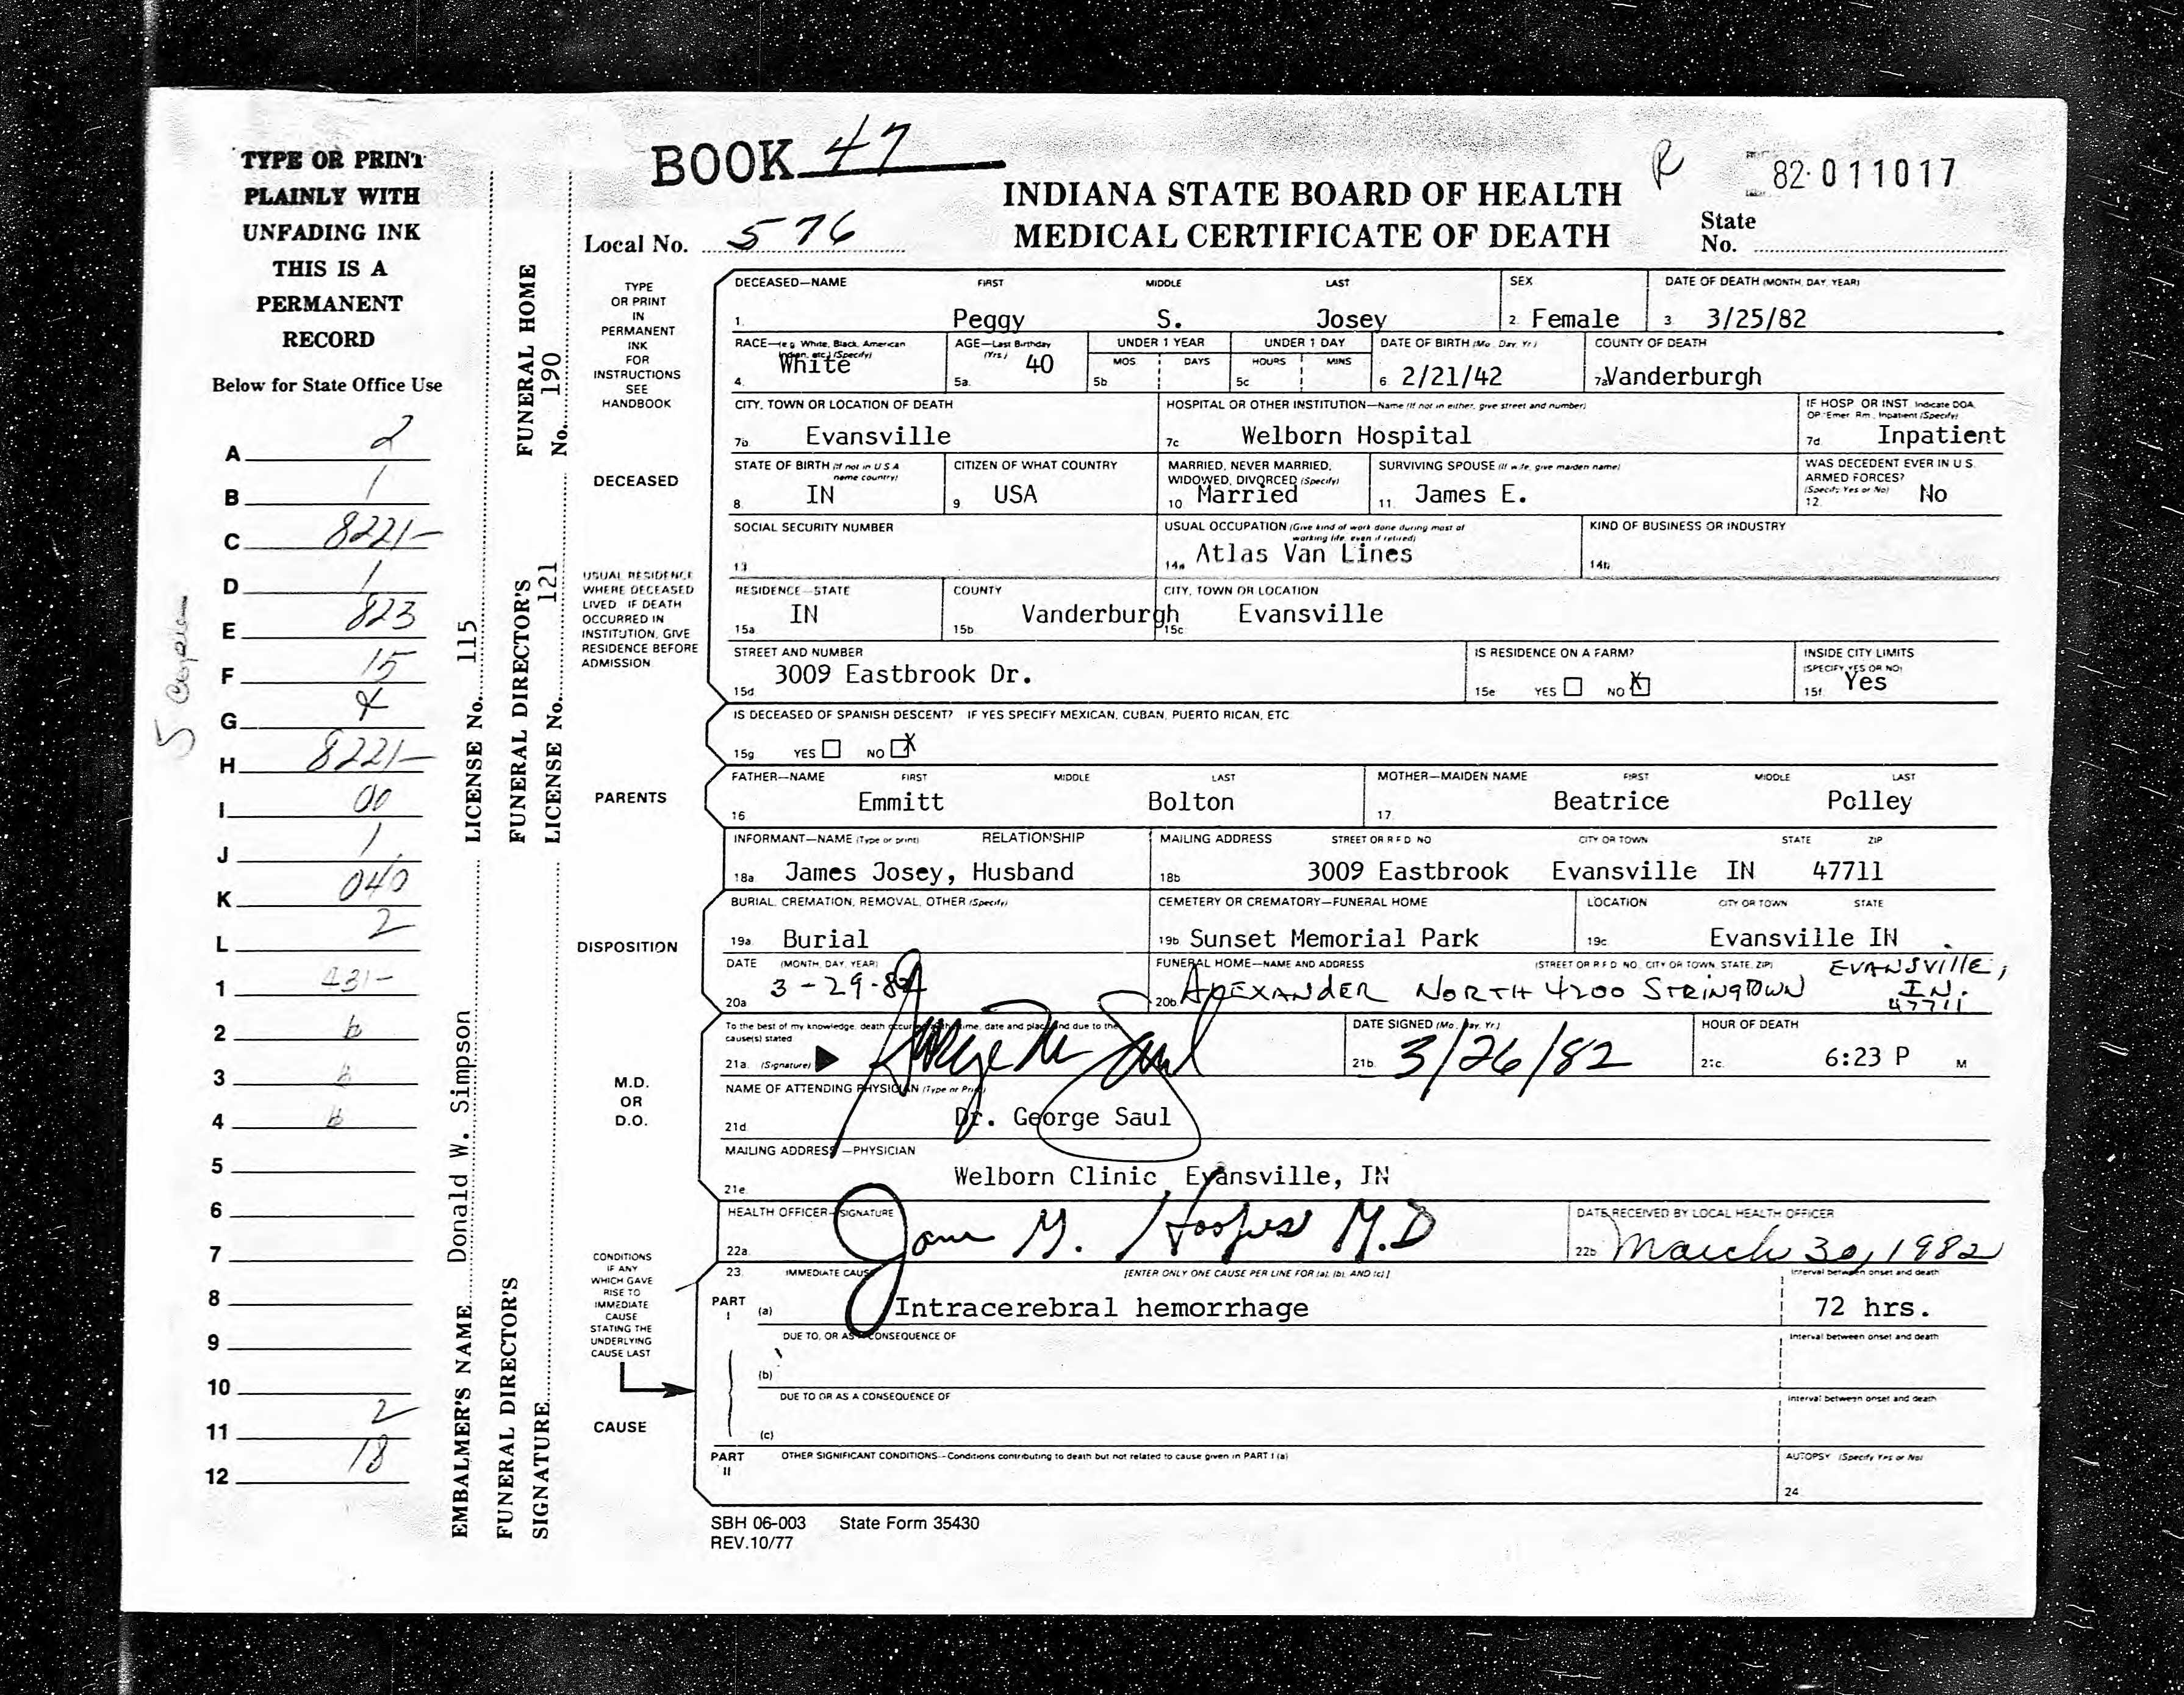 TYPE OR PRINT
PLAINLY WITH
UNFADING INK
THIS IS A
PERMANENT
RECORD
Below for State Office Use
A 2
B 1
C 8221-
D 1
E 823
F 15
G 4
H 8221-
I 00
J 1
K 040
L 2
1 431-
2 b
3
4 b
5
6
7
8
9
10
11 2
12 18
5 Copies
EMBALMER'S NAME Donald W. Simpson LICENSE No. 115
FUNERAL DIRECTOR'S SIGNATURE
FUNERAL DIRECTOR'S LICENSE No. 121
FUNERAL HOME No. 190
BOOK 47
R
82-011017
INDIANA STATE BOARD OF HEALTH
MEDICAL CERTIFICATE OF DEATH
Local No. 576
State
No.
TYPE
OR PRINT
IN
PERMANENT
INK
FOR
INSTRUCTIONS
SEE
HANDBOOK
DECEASED—NAME FIRST MIDDLE LAST SEX DATE OF DEATH (MONTH, DAY, YEAR)
1. Peggy S. Josey 2. Female 3. 3/25/82
RACE—(e.g. White, Black, American Indian, etc.) (Specify) AGE—Last Birthday (Yrs.) UNDER 1 YEAR UNDER 1 DAY DATE OF BIRTH (Mo., Day, Yr.) COUNTY OF DEATH
MOS DAYS HOURS MINS
4. White 5a. 40 5b 5c 6 2/21/42 7a Vanderburgh
CITY, TOWN OR LOCATION OF DEATH HOSPITAL OR OTHER INSTITUTION—Name (If not in either, give street and number) IF HOSP. OR INST. Indicate DOA, OP/Emer. Rm., Inpatient (Specify)
7b. Evansville 7c Welborn Hospital 7d. Inpatient
DECEASED
STATE OF BIRTH (If not in U S A name country) CITIZEN OF WHAT COUNTRY MARRIED, NEVER MARRIED, WIDOWED, DIVORCED (Specify) SURVIVING SPOUSE (If wife, give maiden name) WAS DECEDENT EVER IN U.S. ARMED FORCES? (Specify Yes or No)
8. IN 9. USA 10. Married 11. James E. 12. No
SOCIAL SECURITY NUMBER USUAL OCCUPATION (Give kind of work done during most of working life, even if retired) KIND OF BUSINESS OR INDUSTRY
13 14a Atlas Van Lines 14b
USUAL RESIDENCE
WHERE DECEASED
LIVED IF DEATH
OCCURRED IN
INSTITUTION, GIVE
RESIDENCE BEFORE
ADMISSION.
RESIDENCE—STATE COUNTY CITY, TOWN OR LOCATION
15a IN 15b. Vanderburgh 15c Evansville
STREET AND NUMBER IS RESIDENCE ON A FARM? INSIDE CITY LIMITS (SPECIFY YES OR NO)
15d 3009 Eastbrook Dr. 15e YES NO X 15f Yes
IS DECEASED OF SPANISH DESCENT? IF YES SPECIFY MEXICAN, CUBAN, PUERTO RICAN, ETC
15g YES NO X
PARENTS
FATHER—NAME FIRST MIDDLE LAST MOTHER—MAIDEN NAME FIRST MIDDLE LAST
16 Emmitt Bolton 17. Beatrice Polley
INFORMANT—NAME (Type or print) RELATIONSHIP MAILING ADDRESS STREET OR R F D NO CITY OR TOWN STATE ZIP
18a. James Josey, Husband 18b 3009 Eastbrook Evansville IN 47711
DISPOSITION
BURIAL, CREMATION, REMOVAL, OTHER (Specify) CEMETERY OR CREMATORY—FUNERAL HOME LOCATION CITY OR TOWN STATE
19a. Burial 19b Sunset Memorial Park 19c Evansville IN
DATE (MONTH, DAY, YEAR) FUNERAL HOME—NAME AND ADDRESS (STREET OR R F D NO. CITY OR TOWN, STATE, ZIP)
20a 3-29-82 20b ALEXANDER NORTH 4200 STRINGTOWN EVANSVILLE, IN. 47711
M.D.
OR
D.O.
To the best of my knowledge, death occurred at the time, date and place and due to the cause(s) stated DATE SIGNED (Mo., Day, Yr.) HOUR OF DEATH
21a. (Signature) George M Saul 21b. 3/26/82 21c. 6:23 P M
NAME OF ATTENDING PHYSICIAN (Type or Print)
21d Dr. George Saul
MAILING ADDRESS—PHYSICIAN
21e. Welborn Clinic Evansville, IN
HEALTH OFFICER—SIGNATURE DATE RECEIVED BY LOCAL HEALTH OFFICER
22a. Jane M. Hoopes M.D 22b March 30, 1982
CONDITIONS
IF ANY
WHICH GAVE
RISE TO
IMMEDIATE
CAUSE
STATING THE
UNDERLYING
CAUSE LAST
CAUSE
23. IMMEDIATE CAUSE [ENTER ONLY ONE CAUSE PER LINE FOR (a), (b), AND (c)] Interval between onset and death
PART I (a) Intracerebral hemorrhage 72 hrs.
DUE TO, OR AS A CONSEQUENCE OF Interval between onset and death
(b)
DUE TO OR AS A CONSEQUENCE OF Interval between onset and death
(c)
PART II OTHER SIGNIFICANT CONDITIONS—Conditions contributing to death but not related to cause given in PART I (a) AUTOPSY (Specify Yes or No)
24.
SBH 06-003 State Form 35430
REV.10/77